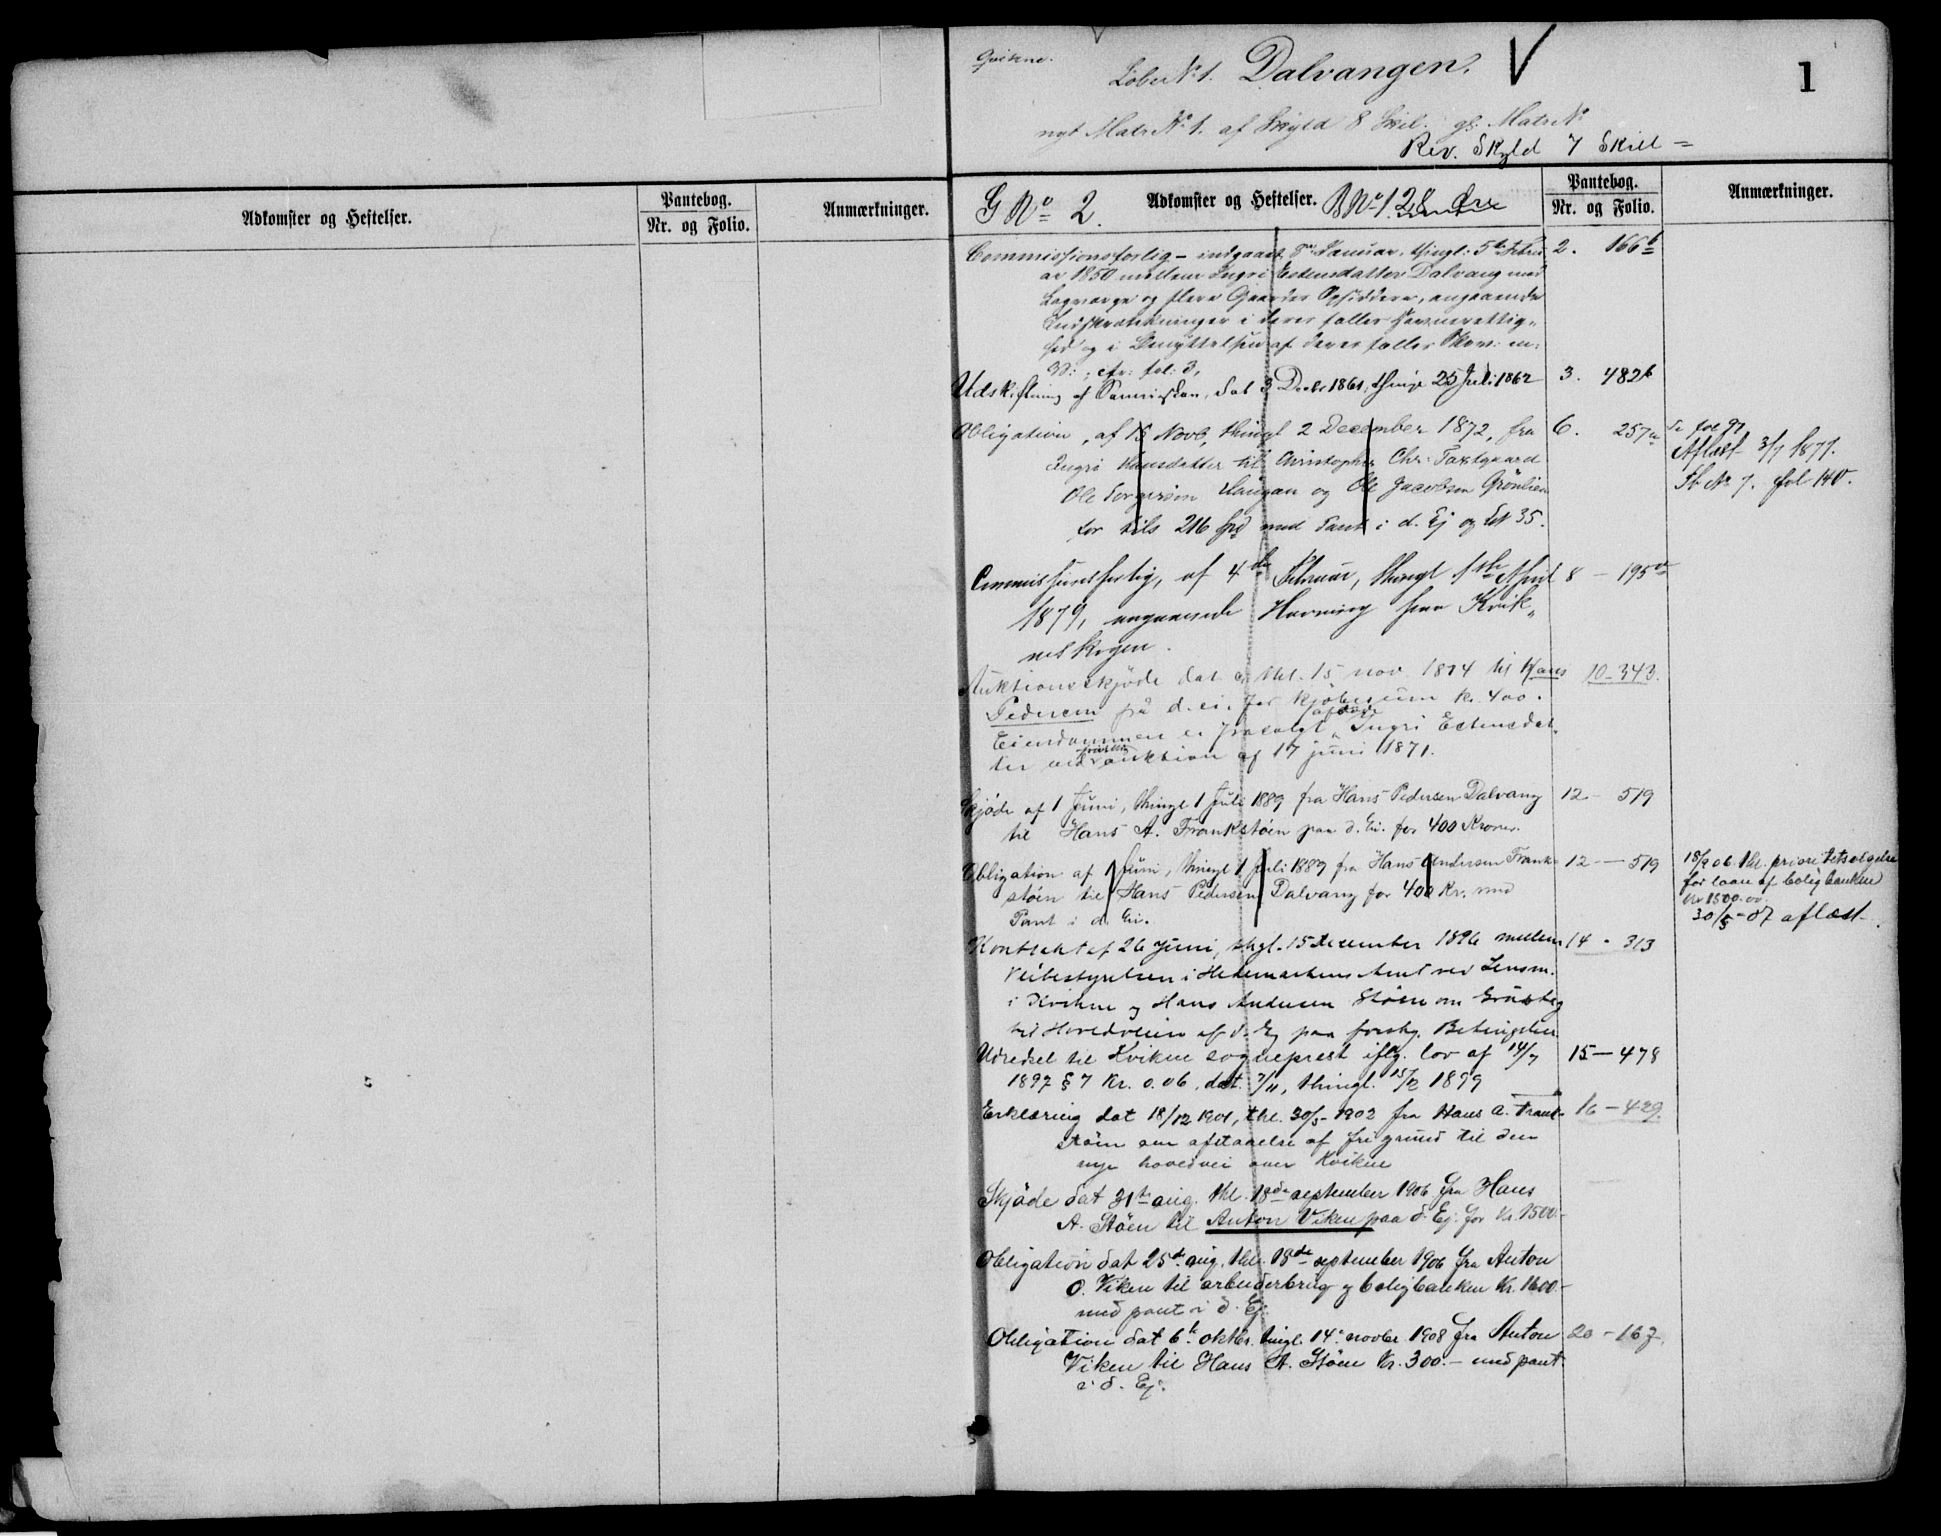 Adkomster og Heftelser.
Pantebog.
Nr. og Folio.
Anmærkninger.
Qvikne.
1
Løbe No 1. Dalvangen.
nyt Matr No 1. af Skyld 8 Skil. gl. Matr No
Rev. Skyld 7 Skill =
G No 2. Adkomster og Heftelser. B No 1. 28 Øre
Pantebog.
Nr. og Folio.
Anmærkninger.
Commissionsforlig - indgaaet Januar, thingl: 5te Febru 2. 166b
ar 1850 mellem Ingri Estensdatter Dalvang med
Lagværge og flere Gaardes Opsiddere, angaaende
Indskrænkninger i deres fælles Havnerettig-
hed og i Benyttelsen af deres fælles Skov: m:
v: ; cfr: fol: 3,
Udskiftning af Sameieskov, dat 3 Decbr 1861, thingl 25 Juli 1862 3. 482b
Obligation, af 15 Novb, thingl 2 December 1872, fra 6. 257a
Ingri Hansdatter til Christopher Chr:
Ole Haugan og Ole Jacobsen Grønlien
for tils 216 Spd med Pant i d. Ej og No 35.
Se fol 97
Aflæst 3/7 1877.
Pb No 7. fol 140.
Commissionsforlig, af 4de Februar, thingl 1ste April 8 - 195
1879, angaaende Havning paa Kvik-
neskogen.
Auktionsskjøde dat & thl. 15 nov. 1874 til Hans 10-343.
Pedersen på d. ei. for kjøbesum kr. 400.
Eiendommen er frasolgt afdøde Ingri Estensdat-
ter ved auktion af 17 juni 1871.
Skjøde af 1 Juni, thingl 1 Juli 1889 fra Hans Pedersen Dalvang 12 - 519
til Hans A. Frankstøen paa d. Ei. for 400 Kroner.
Obligation af 1 Juni, thingl 1 Juli 1889 fra Hans Andersen Frank- 12 - 519
støen til Hans Pedersen Dalvang for 400 Kr. med
Pant i d. Ei.
18/9 06. thl. prioritetsvigelse
for laan af boligbanken
Kr 1500.00
30/5-07 aflæst.
Kontrakt af 26 Juni, thgl. 15 December 1896 mellem 14 - 313
Veibestyrelsen i Hedemarkens Amt ved Lensm.
i Kvikne og Hans Andersen Støen om Grustag
til Hovedveien af d. Ej paa forskj. Betingelser.
Udredsel til Kvikne sogneprest iflg. lov af 14/7 15 - 478
1897 § 7 Kr. 0.06, dat. 7/11, thingl. 15/12 1899
Erklæring dat 18/12 1901, thl. 30/5-1902 fra Hans A. Frank- 16 - 429.
støen om afstaaelse af fri grund til den
nye hovedvei over Kvikne
Skjøde dat 31te aug. thl. 18de september 1906 fra Hans
A. Støen til Anton Viken paa d. Ej. for Kr. 1500.-
Obligation dat 25de aug. thl. 18de september 1906 fra Anton
O. Viken til arbeiderbrug og boligbanken Kr. 1600.-
med pant i d. Ej.
Obligation dat 6te oktbr. tingl. 14. novbr 1908 fra Anton 20 - 167.
Viken til Hans A. Støen Kr. 300.- med pant
i d. Ej.